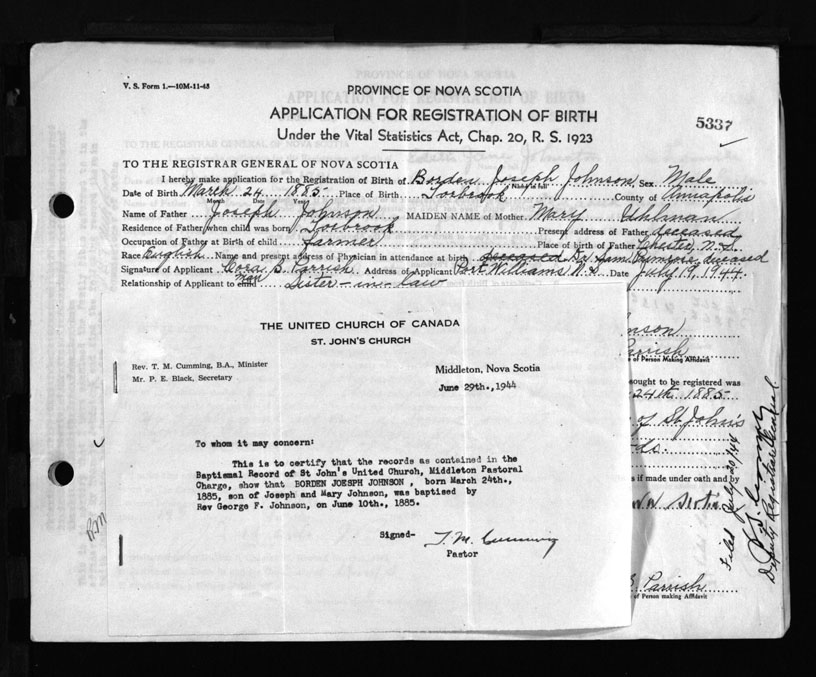 V. S. Form 1.—10M-11-43
PROVINCE OF NOVA SCOTIA
APPLICATION FOR REGISTRATION OF BIRTH
5337
Under the Vital Statistics Act, Chap. 20, R. S. 1923
TO THE REGISTRAR GENERAL OF NOVA SCOTIA
I hereby make application for the Registration of Birth of Borden Joseph Johnson Sex Male
Name in full
Date of Birth March 24 1885 Place of Birth Torbrook County of Annapolis
Month Date Year
Name of Father Joseph Johnson MAIDEN NAME of Mother Mary
Residence of Father when child was born Torbrook Present address of Father deceased
Occupation of Father at Birth of child farmer Place of birth of Father Chester, N.S.
Race English Name and present address of Physician in attendance at birth deceased Dr. Sam. deceased
Signature of Applicant Cora S. Parrish Address of Applicant Port Williams N.S. Date July 19, 1944
Relationship of Applicant to child man Sister-in-law
THE UNITED CHURCH OF CANADA
ST. JOHN'S CHURCH
Rev. T. M. Cumming, B.A., Minister
Mr. P. E. Black, Secretary
Middleton, Nova Scotia
June 29th., 1944
To whom it may concern:
This is to certify that the records as contained in the
Baptismal Record of St John's United Church, Middleton Pastoral
Charge, show that BORDEN JOESPH JOHNSON , born March 24th.,
1885, son of Joseph and Mary Johnson, was baptised by
Rev George F. Johnson, on June 10th., 1885.
Signed- T. M. Cumming
Pastor
nson
Parrish
of Person Making Affidavit
ought to be registered was
24th 1885
of St John's
ds.
is if made under oath and by
Parrish
of Person making Affidavit
Filed July 20/44
Deputy Registrar General